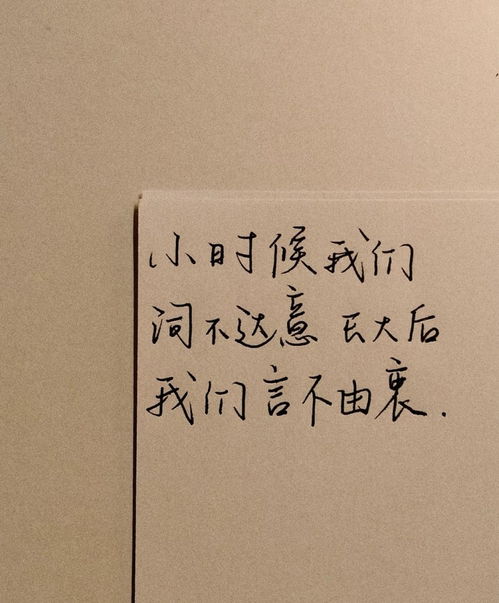 小时候我们
词不达意 长大后
我们言不由衷.